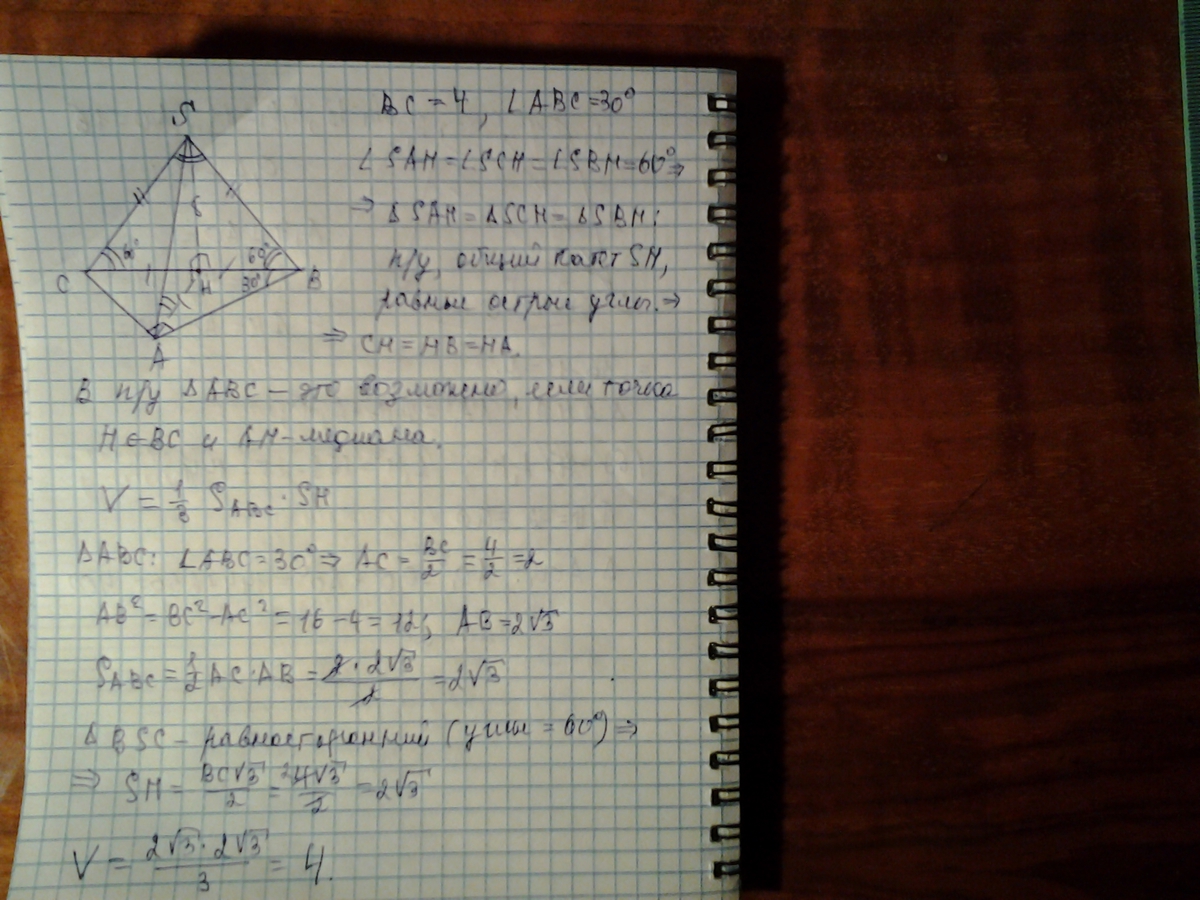 BC = 4, ∠ABC = 30°
∠SAH = ∠SCH = ∠SBH = 60° ⇒
⇒ ΔSAH = ΔSCH = ΔSBH:
п/у, общий катет SH,
равные острые углы. ⇒
⇒ CH = HB = HA.
S
C
60°
60°
30°
H
B
A
В п/у ΔABC – это возможно, если точка
H ∈ BC и AH – медиана.
V = 1/3 S_ABC · SH
ΔABC: ∠ABC = 30° ⇒ AC = BC/2 = 4/2 = 2
AB² = BC² - AC² = 16 - 4 = 12; AB = 2√3
S_ABC = 1/2 AC · AB = 2 · 2√3 / 2 = 2√3
ΔBSC – равносторонний (углы = 60°) ⇒
⇒ SH = BC√3/2 = 4√3/2 = 2√3
V = 2√3 · 2√3 / 3 = 4.